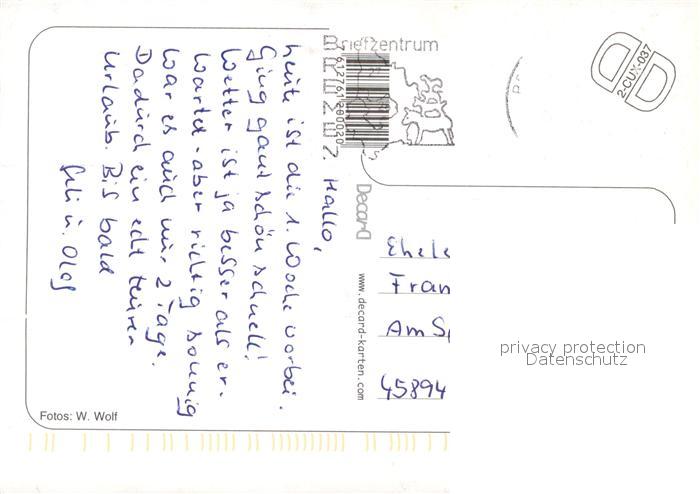 Hallo,
heute ist die 1. Woche vorbei.
Ging ganz schön schnell!
Wetter ist ja besser als er-
wartet - aber richtig sonnig
war es auch nur 2 Tage.
Dadurch ein echt teurer
Urlaub. Bis bald
u. Olaf
Briefzentrum
BREMEN
Decard
www.decard-karten.com
2-CUX-037
Ehele
Fran
Am Sp
45894
privacy protection
Datenschutz
Fotos: W. Wolf